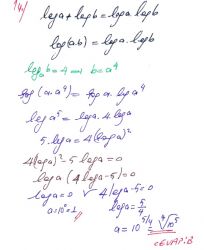 14)
log a + log b = log a . log b
log(a.b) = log a . log b
log_a b = 4 ⟹ b = a⁴
log (a.a⁴) = log a . log a⁴
log a⁵ = log a . 4 log a
5.log a = 4(log a)²
4(log a)² - 5 log a = 0
log a (4 log a - 5) = 0
log a = 0 ∨ 4 log a - 5 = 0
a = 10⁰ = 1 log a = 5/4
a = 10^(5/4) = ⁴√10⁵
CEVAP: B